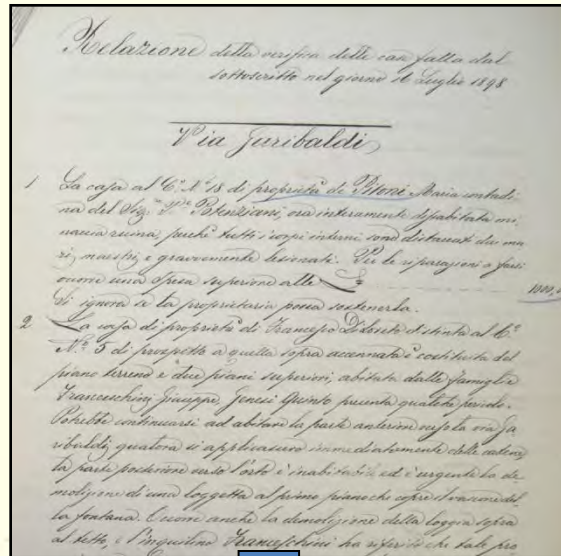 Relazione della verifica delle case fatta dal
sottoscritto nel giorno 16 Luglio 1898
Via Garibaldi
1 La casa al C.º N.º 18 di proprietà di Pitoni Maria contadi
na del Sig.r Potenziani, ora interamente disabitata mi
naccia ruina, perchè tutti i corpi interni sono distaccati dai mu
ri maestri e gravemente lesionati. Per le riparazioni a farsi
occorre una spesa superiore alle £
Si ignora se la proprietaria possa sostenerla.
2 La casa di proprietà di Francesco distinta al C.º
N.º 5 di prospetto a quella sopra accennata è costituita del
piano terreno e due piani superiori, abitata dalle famiglie
Franceschini Giuseppe, Quinto presenta qualche pericolo.
Potrebbe continuarsi ad abitare la parte anteriore verso la via Ga
ribaldi, qualora si applicassero immediatamente delle catene,
la parte posteriore verso l'orto è inabitabile ed è urgente la de
molizione di una loggetta al primo piano che copre il vascone del
la fontana. Occorre anche la demolizione della loggia sopra
al tetto, e l'inquilino Franceschini ha riferito che tale pro